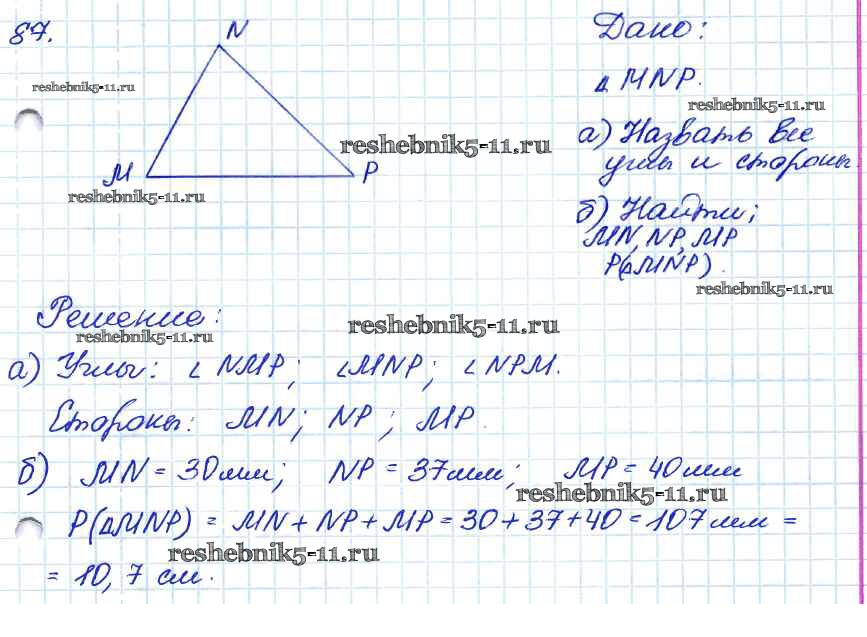 87.
N
M
P
Дано:
△ MNP.
а) Назвать все
углы и стороны.
б) Найти;
MN, NP, MP
P(△MNP).
Решение:
а) Углы: ∠ NMP; ∠MNP; ∠ NPM.
Стороны: MN; NP; MP.
б) MN = 30мм; NP = 37мм; MP = 40мм
P(△MNP) = MN + NP + MP = 30 + 37 + 40 = 107 мм =
= 10,7 см.
reshebnik5-11.ru
reshebnik5-11.ru
reshebnik5-11.ru
reshebnik5-11.ru
reshebnik5-11.ru
reshebnik5-11.ru
reshebnik5-11.ru
reshebnik5-11.ru
reshebnik5-11.ru